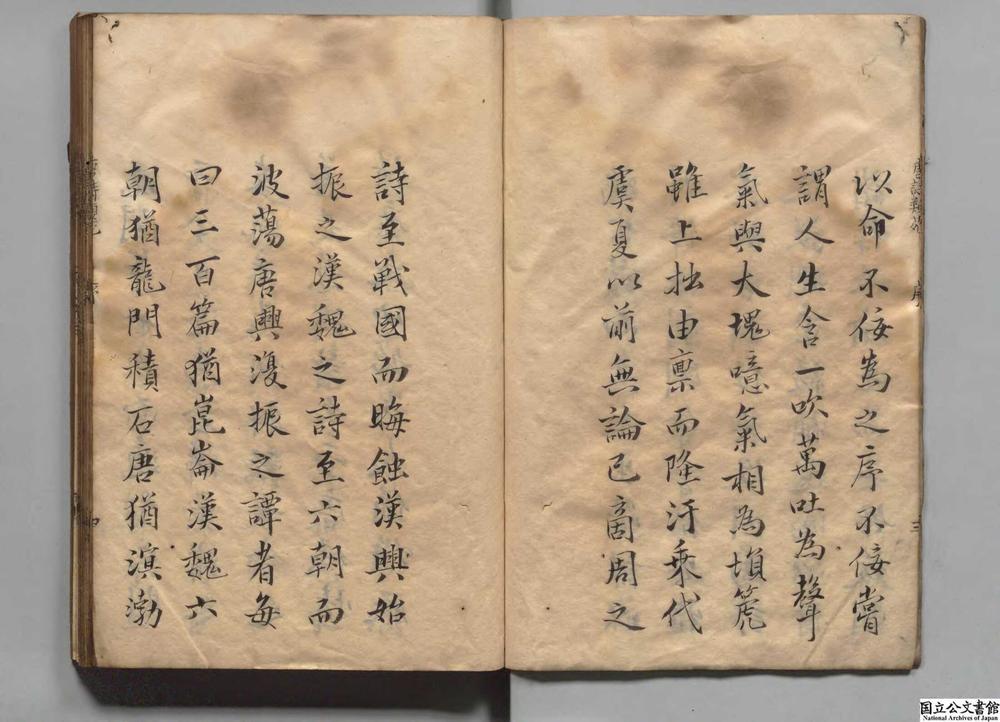 以命不佞為之序不佞嘗
謂人生含一吹萬吐為聲
氣與大塊噫氣相為塤箎
雖上拙由禀而隆汙乗代
虞夏以前無論已啇周之
詩至戰國而晦蝕漢興始
振之漢魏之詩至六朝而
波蕩唐興澓振之譚者每
曰三百篇猶崑崙漢魏六
朝猶龍門積石唐猶溟渤
国立公文書館
National Archives of Japan